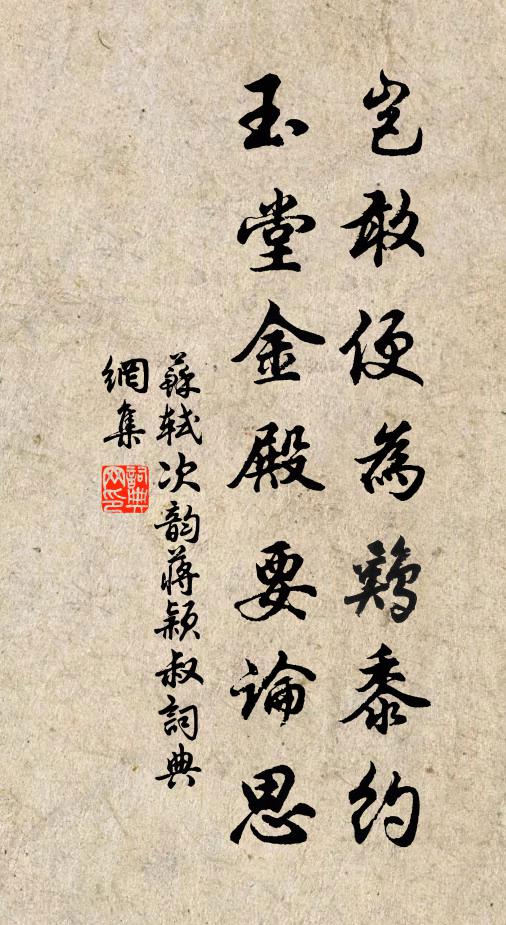 豈敢便為鷄黍約
玉堂金殿要論思
蘇軾次韵蔣穎叔詞典
網集
詞典
网印